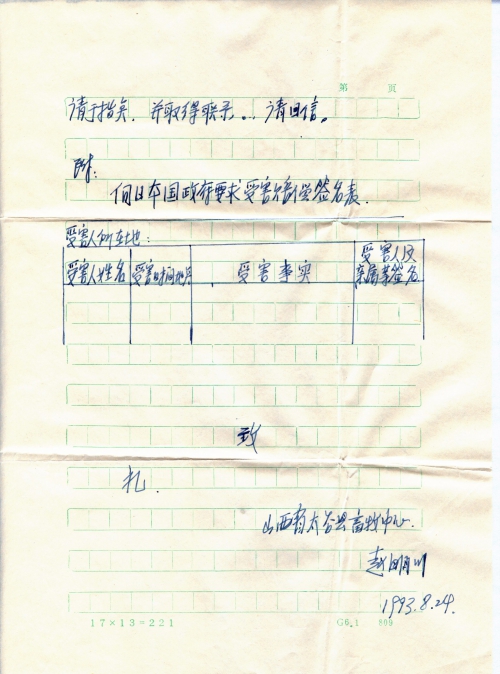 第 页
请予指矣，并取得联系。。请回信。
附：
向日本国政府要求受害赔偿签名表.
受害人所在地：
受害人姓名 受害时间地点 受害事实 受害人及亲属等签名
致
礼.
山西省太谷县畜牧中心.
赵明川
1993.8.24.
17×13=221 G6.1 809